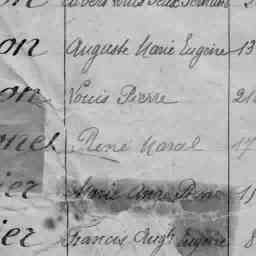 on Auguste Marie Eugène 13
on Louis Pierre 21
ones René Marcel 17
ier Marie Anne 1
ier Francis Augte Eugène 8